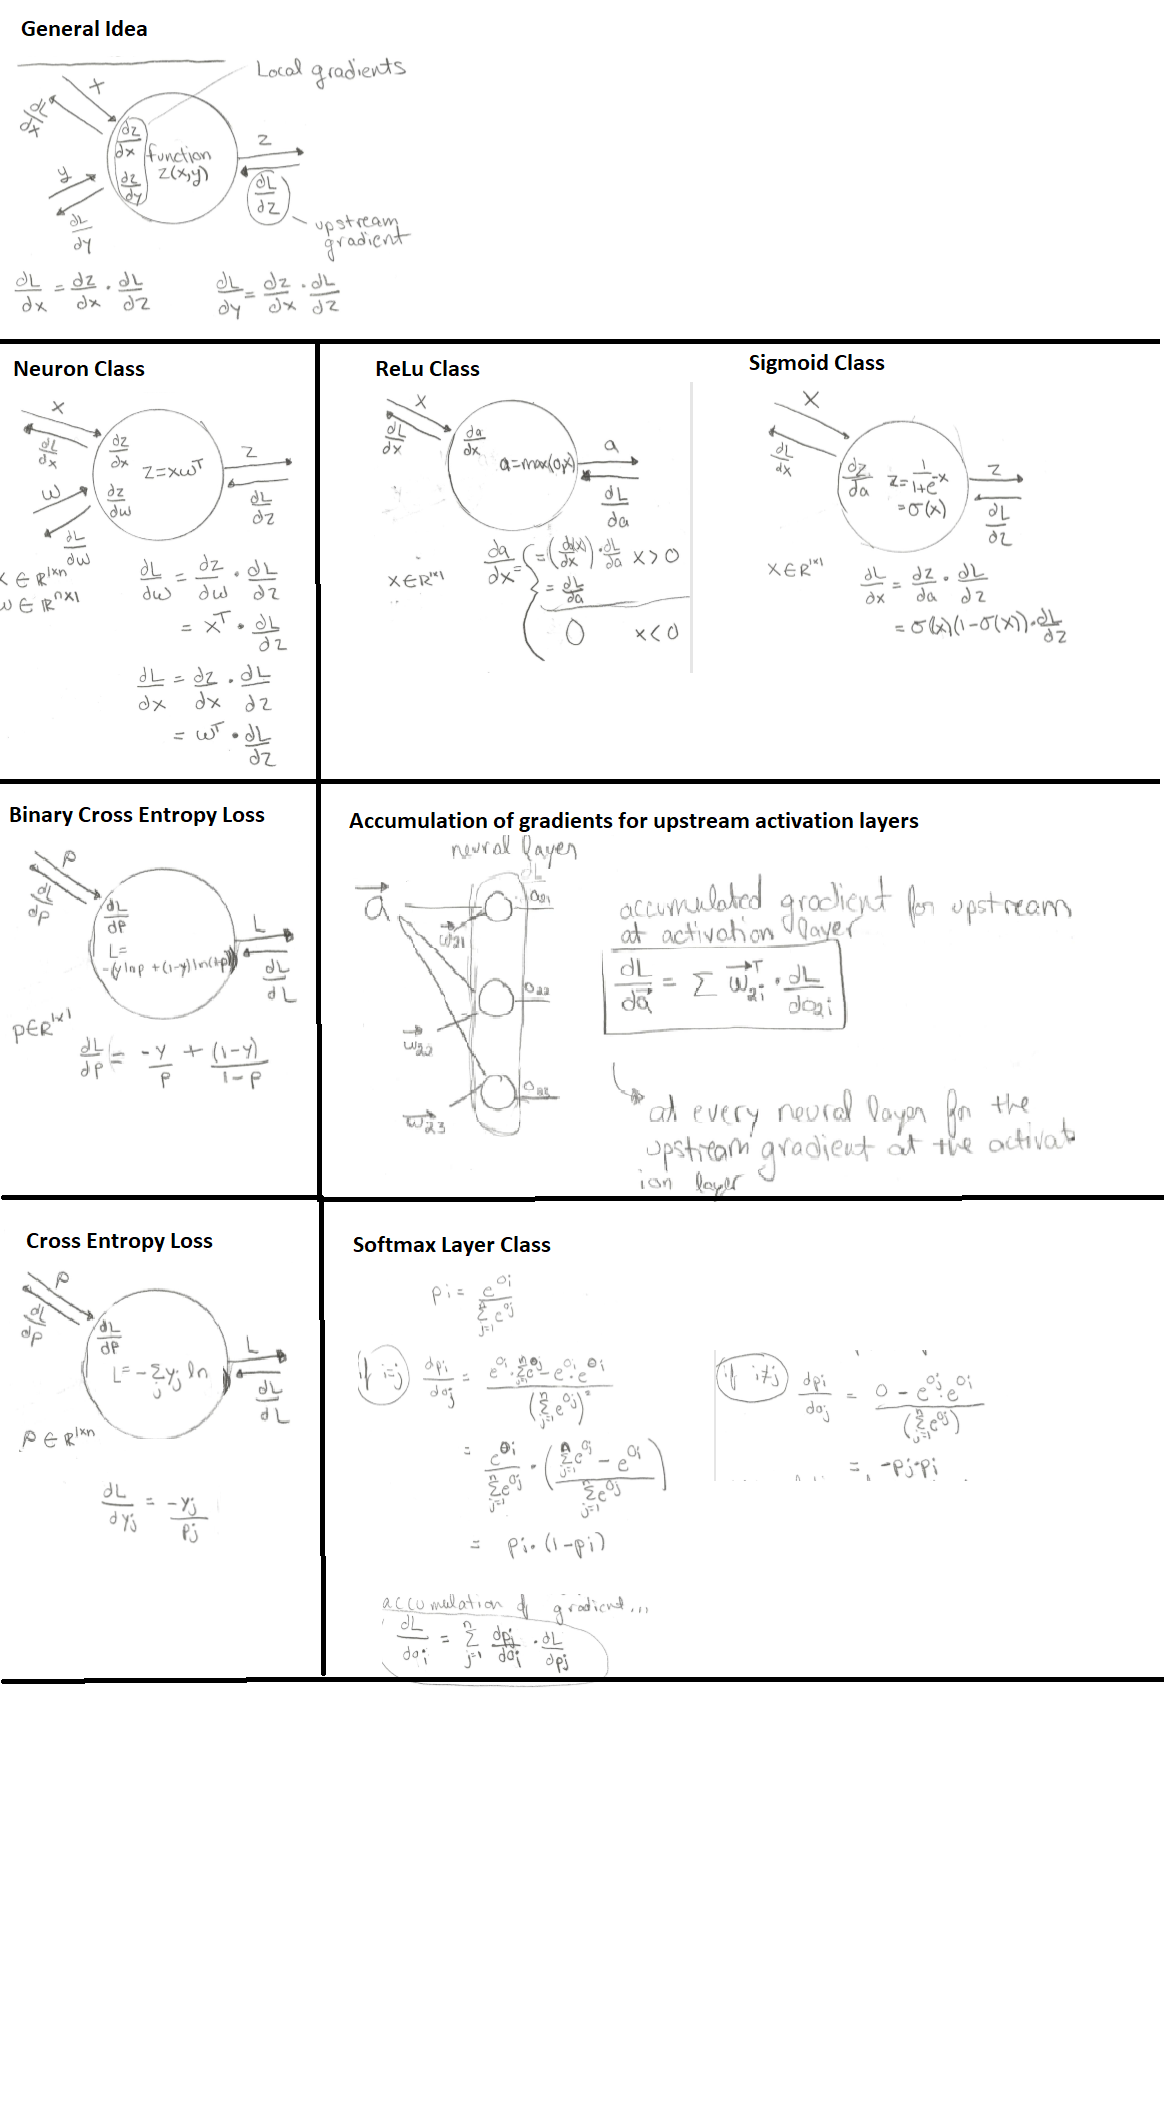 General Idea
Local gradients
x
dL/dx
dz/dx
function
z(x,y)
dz/dy
z
y
dL/dz
dL/dy
upstream
gradient
dL/dx = dz/dx · dL/dz
dL/dy = dz/dx · dL/dz
Neuron Class
x
dL/dx
dz/dx
z=xwᵀ
z
w
dz/dw
dL/dz
dL/dw
x ∈ ℝ¹ˣⁿ
w ∈ ℝⁿˣ¹
dL/dw = dz/dw · dL/dz
= xᵀ · dL/dz
dL/dx = dz/dx · dL/dz
= wᵀ · dL/dz
ReLu Class
x
dL/dx
da/dx
a=max(0,x)
a
dL/da
x∈ℝ¹ˣ¹
da/dx = { = (d(x)/dx) · dL/da x>0
= dL/da
0 x<0
Sigmoid Class
x
dL/dx
dz/da
z = 1/1+e⁻ˣ
=σ(x)
z
dL/dz
x∈ℝ¹ˣ¹
dL/dx = dz/da · dL/dz
= σ(x)(1-σ(x)) · dL/dz
Binary Cross Entropy Loss
p
dL/dp
dL/dp
L=
-(y ln p + (1-y) ln(1-p))
L
dL/dL
p∈ℝ¹ˣ¹
dL/dp = -y/p + (1-y)/1-p
Accumulation of gradients for upstream activation layers
neural layer
dL
a
o₂₁
w₂₁
o₂₂
w₂₂
w₂₃
accumulated gradient for upstream
at activation layer
dL/da = Σ w₂ᵢᵀ · dL/do₂ᵢ
at every neural layer for the
upstream gradient at the activat
ion layer
Cross Entropy Loss
p
dL/dp
dL/dp
L= -Σⱼ yⱼ ln
L
dL/dL
p ∈ ℝ¹ˣⁿ
dL/dyⱼ = -yⱼ/pⱼ
Softmax Layer Class
pi = e^oi / Σⁿj=1 e^oj
if i=j
dpi/doj = e^oi · Σⁿj=1 e^oj - e^oi · e^oi / (Σⁿj=1 e^oj)²
= e^oi / Σⁿj=1 e^oj · (Σⁿj=1 e^oj - e^oi / Σⁿj=1 e^oj)
= pi · (1-pi)
if i≠j
dpi/doj = 0 - e^oj · e^oi / (Σⁿj=1 e^oj)
= -pj·pi
accumulation of gradient...
dL/doi = Σⁿj=1 dpj/doi · dL/dpj